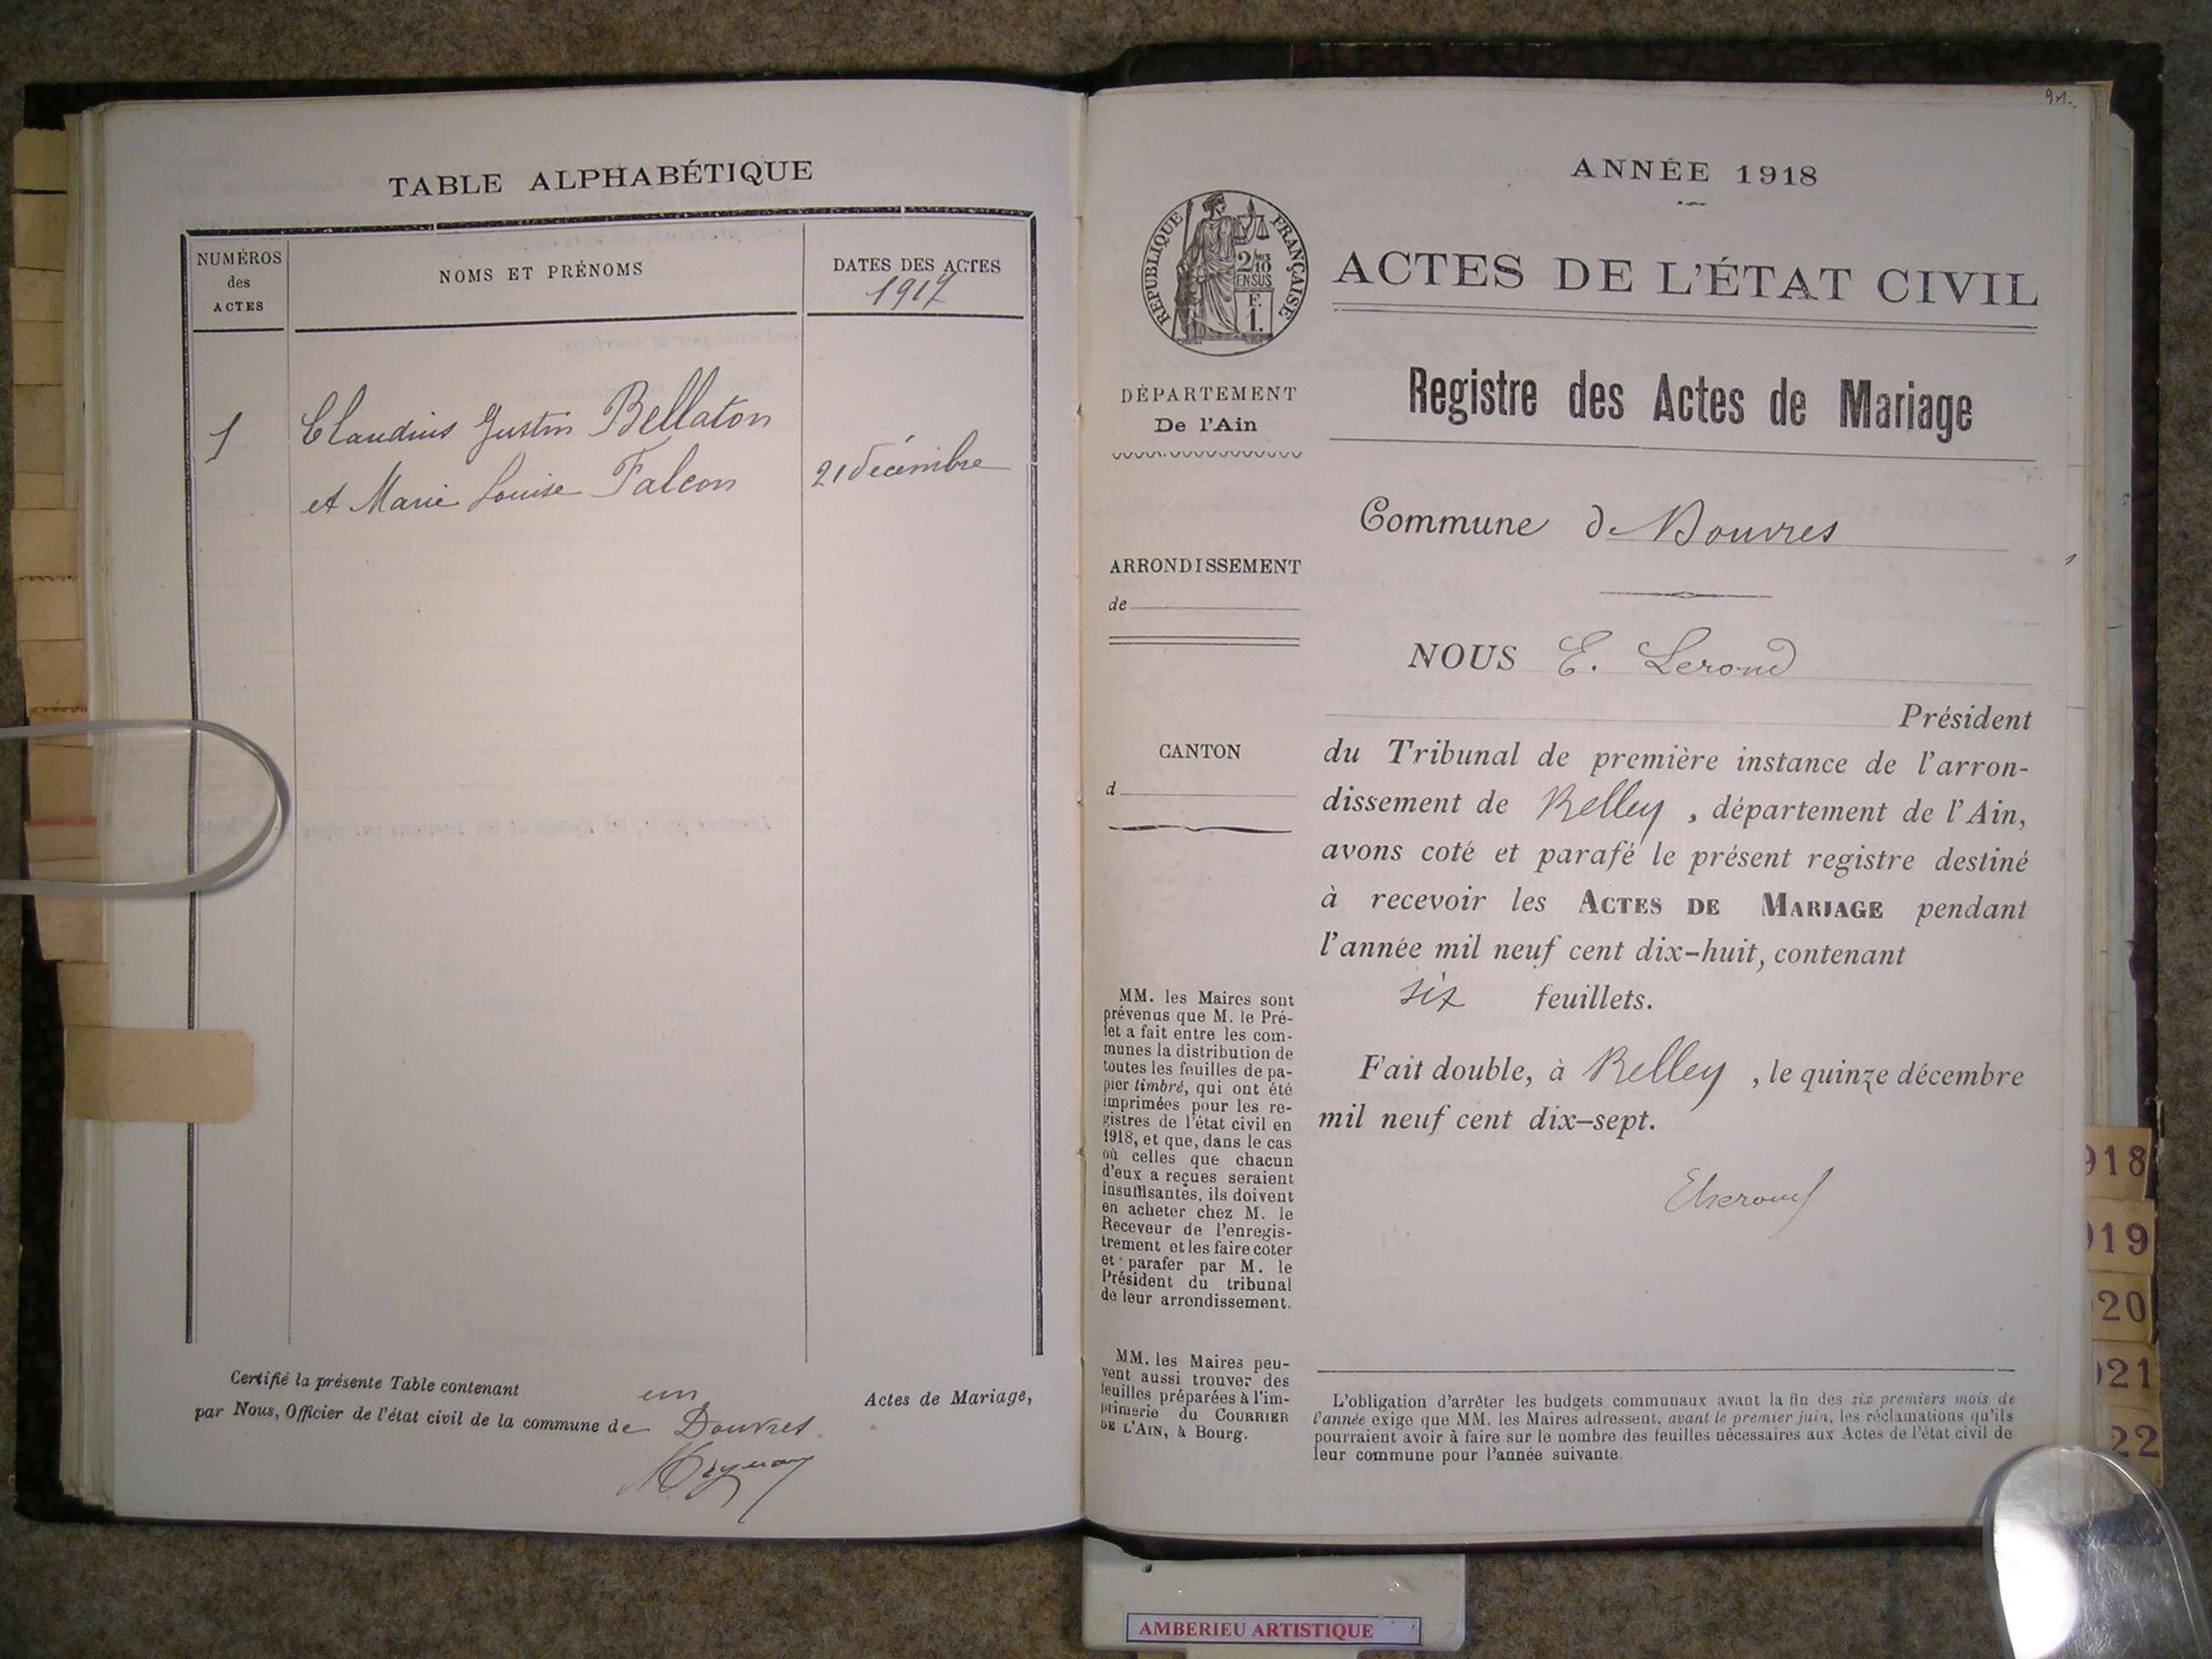 TABLE ALPHABÉTIQUE
NUMÉROS
des
ACTES
NOMS ET PRÉNOMS
DATES DES ACTES
1917
1
Claudius Justin Bellaton
et Marie Louise Falcon
21 décembre
Certifié la présente Table contenant un Actes de Mariage,
par Nous, Officier de l'état civil de la commune de Douvres.
ANNÉE 1918
RÉPUBLIQUE FRANÇAISE
ACTES DE L'ÉTAT CIVIL
Registre des Actes de Mariage
DÉPARTEMENT
De l'Ain
Commune de Douvres
ARRONDISSEMENT
de
CANTON
d
NOUS E. Lerond
Président
du Tribunal de première instance de l'arron-
dissement de Belley, département de l'Ain,
avons coté et parafé le présent registre destiné
à recevoir les ACTES DE MARIAGE pendant
l'année mil neuf cent dix-huit, contenant
six feuillets.
Fait double, à Belley, le quinze décembre
mil neuf cent dix-sept.
MM. les Maires sont
prévenus que M. le Pré-
fet a fait entre les com-
munes la distribution de
toutes les feuilles de pa-
pier timbré, qui ont été
imprimées pour les re-
gistres de l'état civil en
1918, et que, dans le cas
où celles que chacun
d'eux a reçues seraient
insuffisantes, ils doivent
en acheter chez M. le
Receveur de l'enregis-
trement et les faire coter
et parafer par M. le
Président du tribunal
de leur arrondissement.
MM. les Maires peu-
vent aussi trouver des
feuilles préparées à l'im-
primerie du COURRIER
DE L'AIN, à Bourg.
L'obligation d'arrêter les budgets communaux avant la fin des six premiers mois de
l'année exige que MM. les Maires adressent, avant le premier juin, les réclamations qu'ils
pourraient avoir à faire sur le nombre des feuilles nécessaires aux Actes de l'état civil de
leur commune pour l'année suivante.
918
919
20
921
22
AMBERIEU ARTISTIQUE